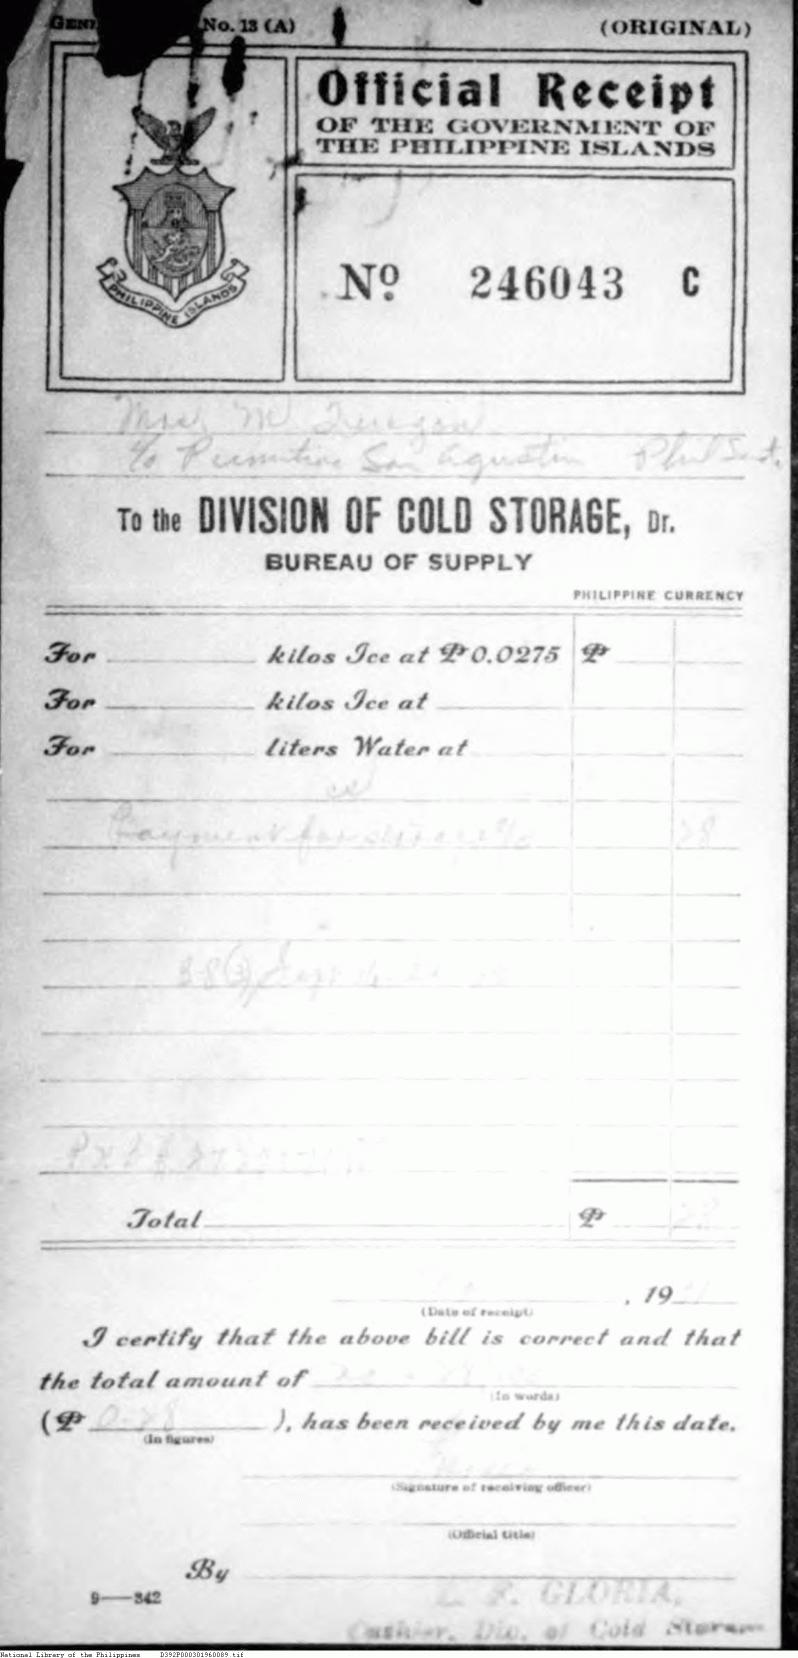 No. 13 (A) (ORIGINAL)
Official Receipt
OF THE GOVERNMENT OF
THE PHILIPPINE ISLANDS
PHILIPPINE ISLANDS
No. 246043 C
Mrs. M.
c/o San Agustin
To the DIVISION OF COLD STORAGE, Dr.
BUREAU OF SUPPLY
PHILIPPINE CURRENCY
For kilos Ice at ₱0.0275 ₱
For kilos Ice at
For liters Water at
Payment for storage 28
Total ₱ 28
, 19
(Date of receipt)
I certify that the above bill is correct and that
the total amount of
(In words)
(₱ 0.28 ), has been received by me this date.
(In figures)
(Signature of receiving officer)
(Official title)
By
9——342
GLORIA,
Cashier, Div. of Cold Storage
National Library of the Philippines D392P000301960089.tif